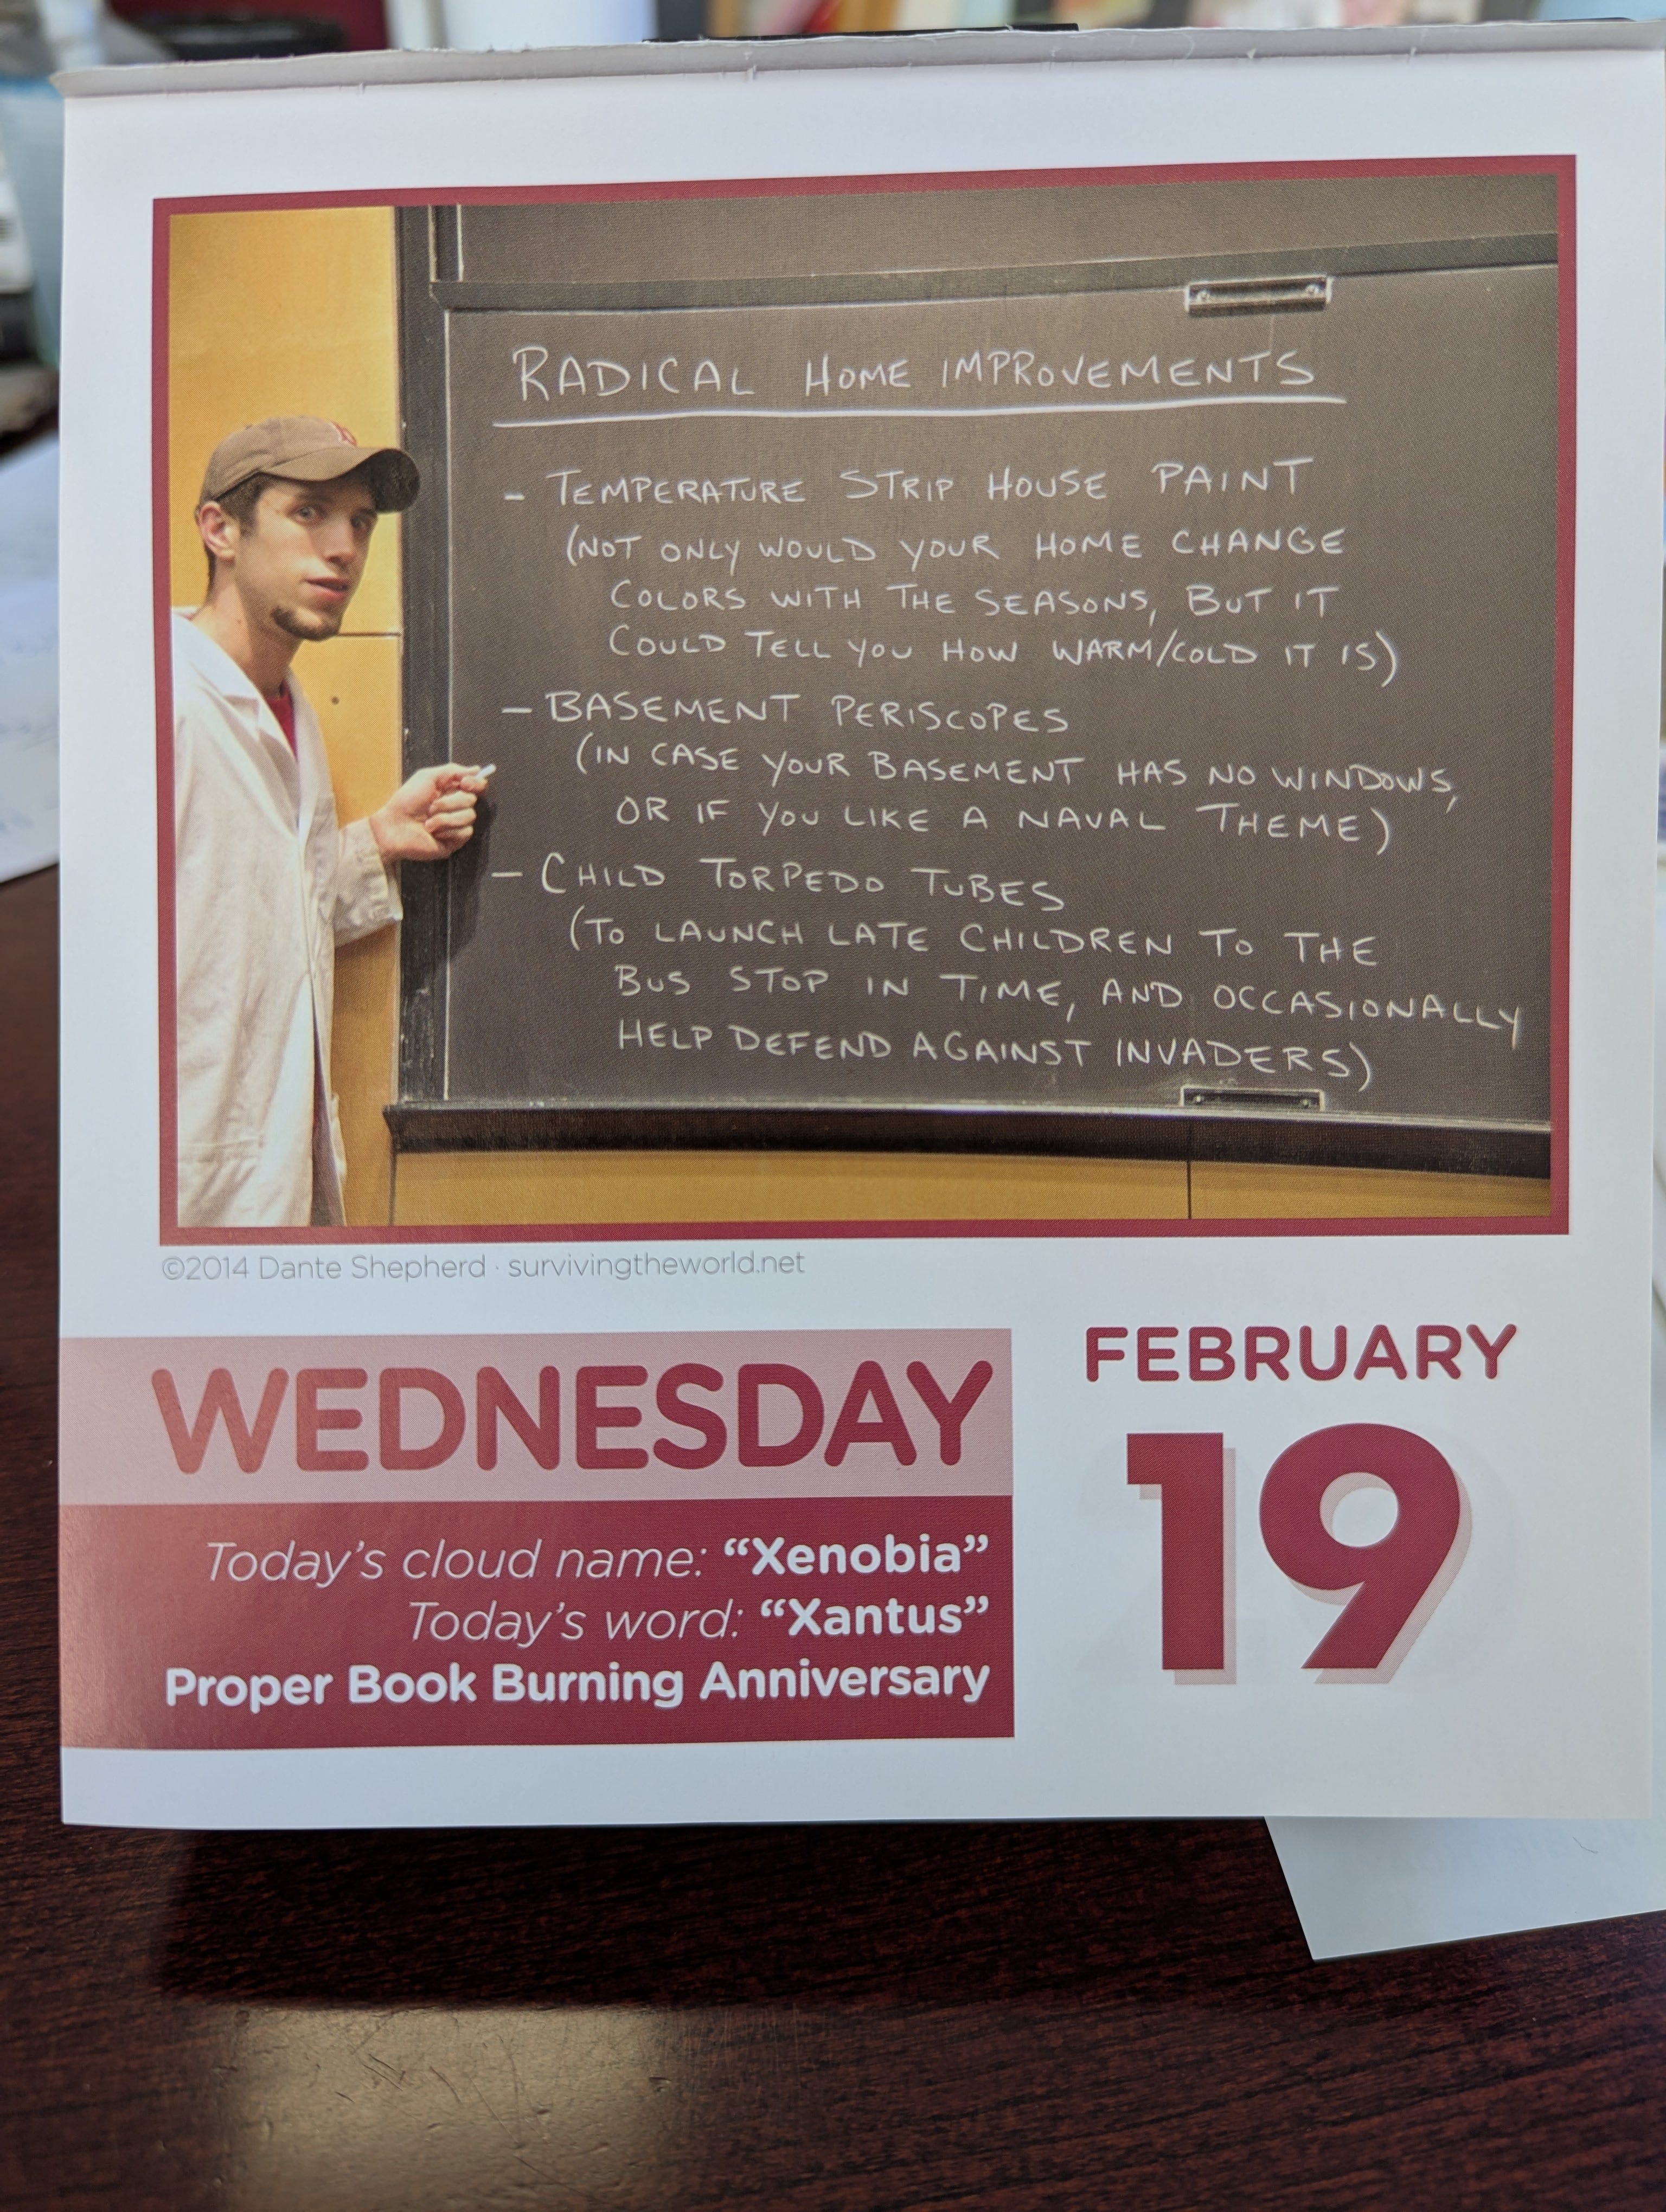 RADICAL HOME IMPROVEMENTS
- TEMPERATURE STRIP HOUSE PAINT
(NOT ONLY WOULD YOUR HOME CHANGE
COLORS WITH THE SEASONS, BUT IT
COULD TELL YOU HOW WARM/COLD IT IS)
- BASEMENT PERISCOPES
(IN CASE YOUR BASEMENT HAS NO WINDOWS,
OR IF YOU LIKE A NAVAL THEME)
- CHILD TORPEDO TUBES
(TO LAUNCH LATE CHILDREN TO THE
BUS STOP IN TIME, AND OCCASIONALLY
HELP DEFEND AGAINST INVADERS)
©2014 Dante Shepherd · survivingtheworld.net
WEDNESDAY
Today's cloud name: “Xenobia”
Today's word: “Xantus”
Proper Book Burning Anniversary
FEBRUARY
19